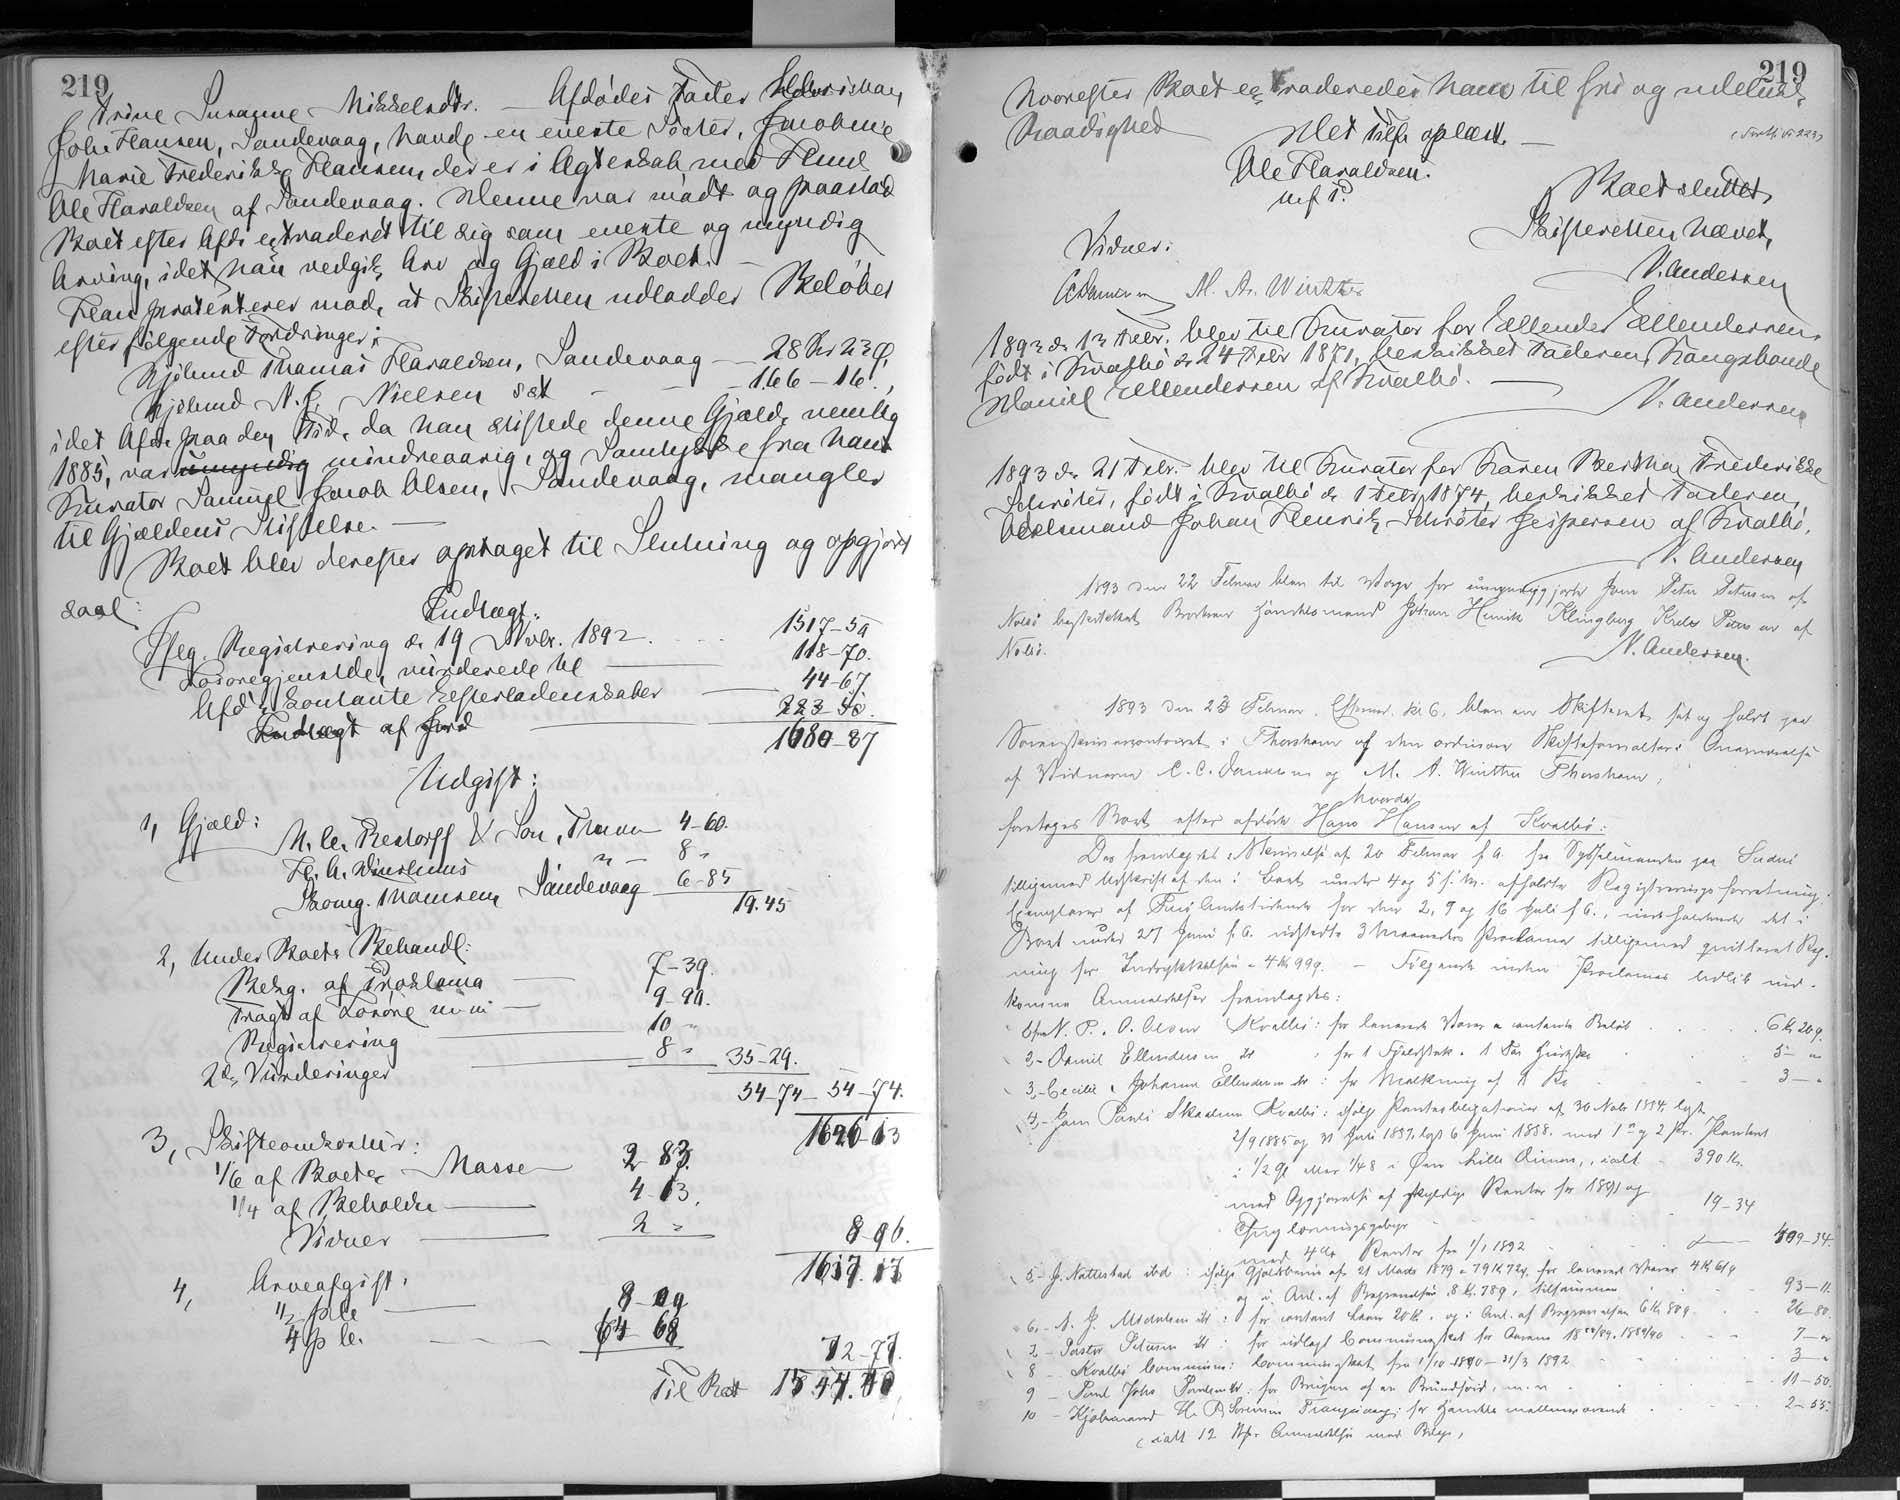 219
Trine Susanne Mikkelsdtr. — Afdødes Faster
John Hansen, Sandevaag, havde en eneste Søster, Jacobine
Marie Frederikke Hansen, der er i Ægteskab med
Ole Haraldsen af Sandevaag. Denne var mødt og paastod
Boet efter Afdø extraderet til sig som eneste og myndig
Arving, idet han vedgik Arv og Gjæld i Boet. —
Han protesterer mod, at Skifteretten udlodder Beløbet
efter følgende Fordringer:
Kjøbmd Thomas Haraldsen, Sandevaag — 28 Kr 23 Ø
Kjøbmd N. J. Nielsen sst — 166 - 16.,
idet Afdø paa den Tid, da han stiftede denne Gjæld, nemlig
1885, var umyndig mindreaarig, og Samtykke fra hans
Kurator Samuel Jacob Olsen, Sandevaag, mangler
til Gjældens Stiftelse. —
Boet blev derefter optaget til Slutning og opgjort
saal:
Indtægt:
Iflg. Registrering d. 19 Novbr. 1892. 1517-50
Løsøregjenstde, vurderede til — 118-70.
Afdø's kontante Efterladenskaber — 44-67
Indtægt af Jord
1680-87
Udgift:
1, Gjæld:
M. C. Restorff & Søn, Thavn 4-60.
8 "
Skomg. Thomsen, Sandevaag — 6-85
19.45
2, Under Boets Behandl:
Bekg. af Proklama — 7-39.
Fragt af Løsøre — 9-90.
Registrering 10 "
2de Vurderinger 8 " 35-29.
54-74 - 54-74.
3, Skifteomkostn:
1/6 af Boets Masse 2 83.
1/4 af Beholdn — 4-13.
Vidner — 2 "
8-96.
1617.17
4, Arveafgift:
1/2 p Ct — 8-09
4 p Ct. — 64 68
72-77.
Til Rest 1544.40
219
hvorefter Boet extraderedes ham til fri og udelukk.
Raadighed
Det Tilfø oplæst. —
Ole Haraldsen.
m f P.
Boet sluttet,
Skifteretten hævet,
N. Andersen
Vidner:
M. A. Winther
1893 d. 13 Febr. blev til Kurator for Ellender Ellendersen,
født i Kvalbø d. 24 Febr 1871, beskikket Faderen, Kongsbonde
Daniel Ellendersen af Kvalbø. —
N. Andersen
1893 d. 21 Febr. blev til Kurator for Karen Bertha Frederikke
Schrøter, født i Kvalbø d. 1 Febr 1874, beskikket Faderen,
Johan Henrik Schrøter Jespersen af Kvalbø.
N. Andersen
1893 den 22 Februar blev til Værge for umyndiggjorte Jens Peter Petersen af
Nolsø beskikket Broderen Handelsmand Johan Henrik Klingberg af
Nolsø.
N. Andersen.
1893 den 23 Februar, Efterm. Kl 6, blev en Skifteret sat og holdt paa
Sorenskriverkontoret i Thorshavn af den ordinære Skifteforvalter i Overværelse
af Vidnerne C. C. Danielsen og M. A. Winther Thorshavn,
hvorda
foretoges Boet efter afdøde Hans Hansen af Kvalbø:
Der fremlagdes: Skrivelse af 20 Februar f. A. fra Sysselmanden paa Suderø
tilligemed Udskrift af den i Boet under 4 og 5 f. M. afholdte Registreringsforretning;
Exemplarer af Færø Amtstidende for den 2, 9 og 16 Juli f. A., indeholdende det i
Boet under 27 Juni f. A. udstedte 3 Maaneders Proclama tilligemed qvitteret Reg-
ning for Indrykkelsen = 4 Kr 99 ø. — Følgende inden Proclamas Udløb ind-
komne Anmeldelser fremlagdes:
1 fra N. P. O. Olsen Kvalbø: for leverede Varer a contante Beløb 6 Kr 20 ø.
2 - Daniel Ellendersen ib : for 1 5 - "
3 - Cecilie Johanne Ellendersen ib : for Malkning af 1 Ko 3 - "
4 - Jens Pauli Skaalum Kvalbø: ifølge Panteobligationer af 30 Novbr 1884, lyst
2/9 1885 og 31 Juli 1887, lyst 6 Juni 1888. med 1ste og 2 Pr. Panteret
i 1/2 Gl eller 1/48 i Øen Lille Dimon, ialt 390 Kr.
med Opgjørelse af skyldige Renter for 1891 og
Tinglæsningsgebyr 19-34
med 4 % Renter fra 1/1 1892 409-34.
5 - J. Nattestad ibd : ifølge Gjældsbevis af 21 Marts 1879 = 79 Kr 72 ø, for leverede Varer 4 Kr 61 ø
og i Anl. af Begravelsen 8 Kr. 78 ø, tilsammen 93-11.
6 - : for contant Laan 20 Kr. og i Anl. af Begravelsen 6 Kr 80 ø 26-80.
7 - Petersen ib : for udlagt Communeskat for Aarene 1888/89, 1889/90 7 - "
8 - Kvalbø Commune: Communeskat fra 1/10 1890 - 31/3 1892 3 - "
9 - Poul Johs Poulsen ib : for Brugen af en 11-50.
10 - Kjøbmand 2-55.
(ialt 12 Anmeldelser med Bilag)